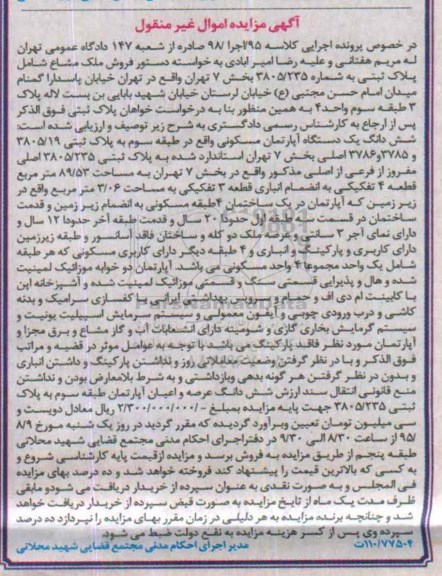 آگهی مزایده اموال غیر منقول
در خصوص پرونده اجرایی کلاسه ۹۵/اجرا ۹۸ صادره از شعبه ۱۴۷ دادگاه عمومی تهران
له مریم هفتانی و علیه رضا امیر ابادی به خواسته دستور فروش ملک مشاع شامل
پلاک ثبتی به شماره ۳۸۰۵/۲۳۵ بخش ۷ تهران واقع در تهران خیابان پاسدارا گمنام
میدان امام حسن مجتبی (ع) خیابان لرستان خیابان شهید بابایی بن بست لاله پلاک
۳ طبقه سوم واحد۴ به همین منظور بنا به درخواست خواهان پلاک ثبتی فوق الذکر
پس از ارجاع به کارشناس رسمی دادگستری به شرح زیر توصیف و ارزیابی شده است:
شش دانگ یک دستگاه آپارتمان مسکونی واقع در طبقه سوم به پلاک ثبتی ۳۸۰۵/۱۹
و ۳۷۸۵و۳۷۸۶ اصلی بخش ۷ تهران استاندارد شده به پلاک ثبتی ۳۸۰۵/۲۳۵ اصلی
مفروز از فرعی از اصلی مذکور واقع در بخش ۷ تهران به مساحت ۸۹/۵۳ متر مربع
قطعه ۴ تفکیکی به انضمام انباری قطعه ۳ تفکیکی به مساحت ۳/۰۶ متر مربع واقع در
زیر زمین که آپارتمان در یک ساختمان ۴طبقه مسکونی به انضمام زیر زمین و قدمت
ساختمان در قسمت سه طبقه اول حدودا ۲۰ سال و قدمت طبقه آخر حدودا ۱۲ سال و
دارای نمای آجر ۳ سانتی و عرصه ملک دو کله و ساختان فاقد آسانسور و طبقه زیرزمین
دارای کاربری و پارکینگ و انباری و ۴ طبقه دیگر دارای کاربری مسکونی که هر طبقه
شامل یک واحد مجموعا ۴ واحد مسکونی می باشد. آپارتمان دو خوابه موزائیک لمینیت
شده و هال و پذیرایی قسمتی سنگ و قسمتی موزائیک لمینیت شده و آشپزخانه اپن
با کابینت ام دی اف و حمام و سرویس بهداشتی ایرانی با کفسازی سرامیک و بدنه
کاشی و درب ورودی چوبی و آیفون معمولی و سیستم سرمایش اسپیلیت یونیت و
سیستم گرمایش بخاری گازی و شومینه دارای انشعابات آب و گاز مشاع و برق مجزا و
آپارتمان مورد نظر فاقد پارکینگ می باشد با توجه به عوامل موثر در قضیه و مراتب
فوق الذکر و با در نظر گرفتن وضعیت معاملاتی روز و نداشتن پارکینگ و داشتن انباری
و بدون در نظر گرفتن هر گونه بدهی وبازداشتی و به شرط بلامعارض بودن و نداشتن
منع قانونی انتقال سند ارزش شش دانگ عرصه و اعیان آپارتمان طبقه سوم به پلاک
ثبتی ۳۸۰۵/۲۳۵ جهت پایه مزایده بمبلغ -/۲/۳۰۰/۰۰۰/۰۰۰ ریال معادل دویست و
سی میلیون تومان تعیین وبرآورد گردیده که مقرر گردید در روز یک شنبه مورخ ۸/۹
/۹۵ از ساعت ۸/۳۰ الی ۹/۳۰ در دفتراجرای احکام مدنی مجتمع قضایی شهید محلاتی
طبقه پنجم از طریق مزایده به فروش برسد و مزایده ازقیمت پایه کارشناسی شروع و
به کسی که بالاترین قیمت را پیشنهاد کند فروخته خواهد شد و ده درصد بهای مزایده
فی المجلس و به صورت نقدی به عنوان سپرده از خریدار دریافت می شود و مابقی
ظرف مدت یک ماه از تایخ مزایده به صورت قبض سپرده از خریدار دریافت خواهد
شد و چنانچه برنده مزایده به هر دلیلی در زمان مقرر بهای مزایده را نپردازد ده درصد
سپرده وی پس از کسر هزینه مزایده به نفع دولت ضبط می شود.
۱۱۰/۷۷۵۰۴ت مدیر اجرای احکام مدنی مجتمع قضایی شهید محلاتی